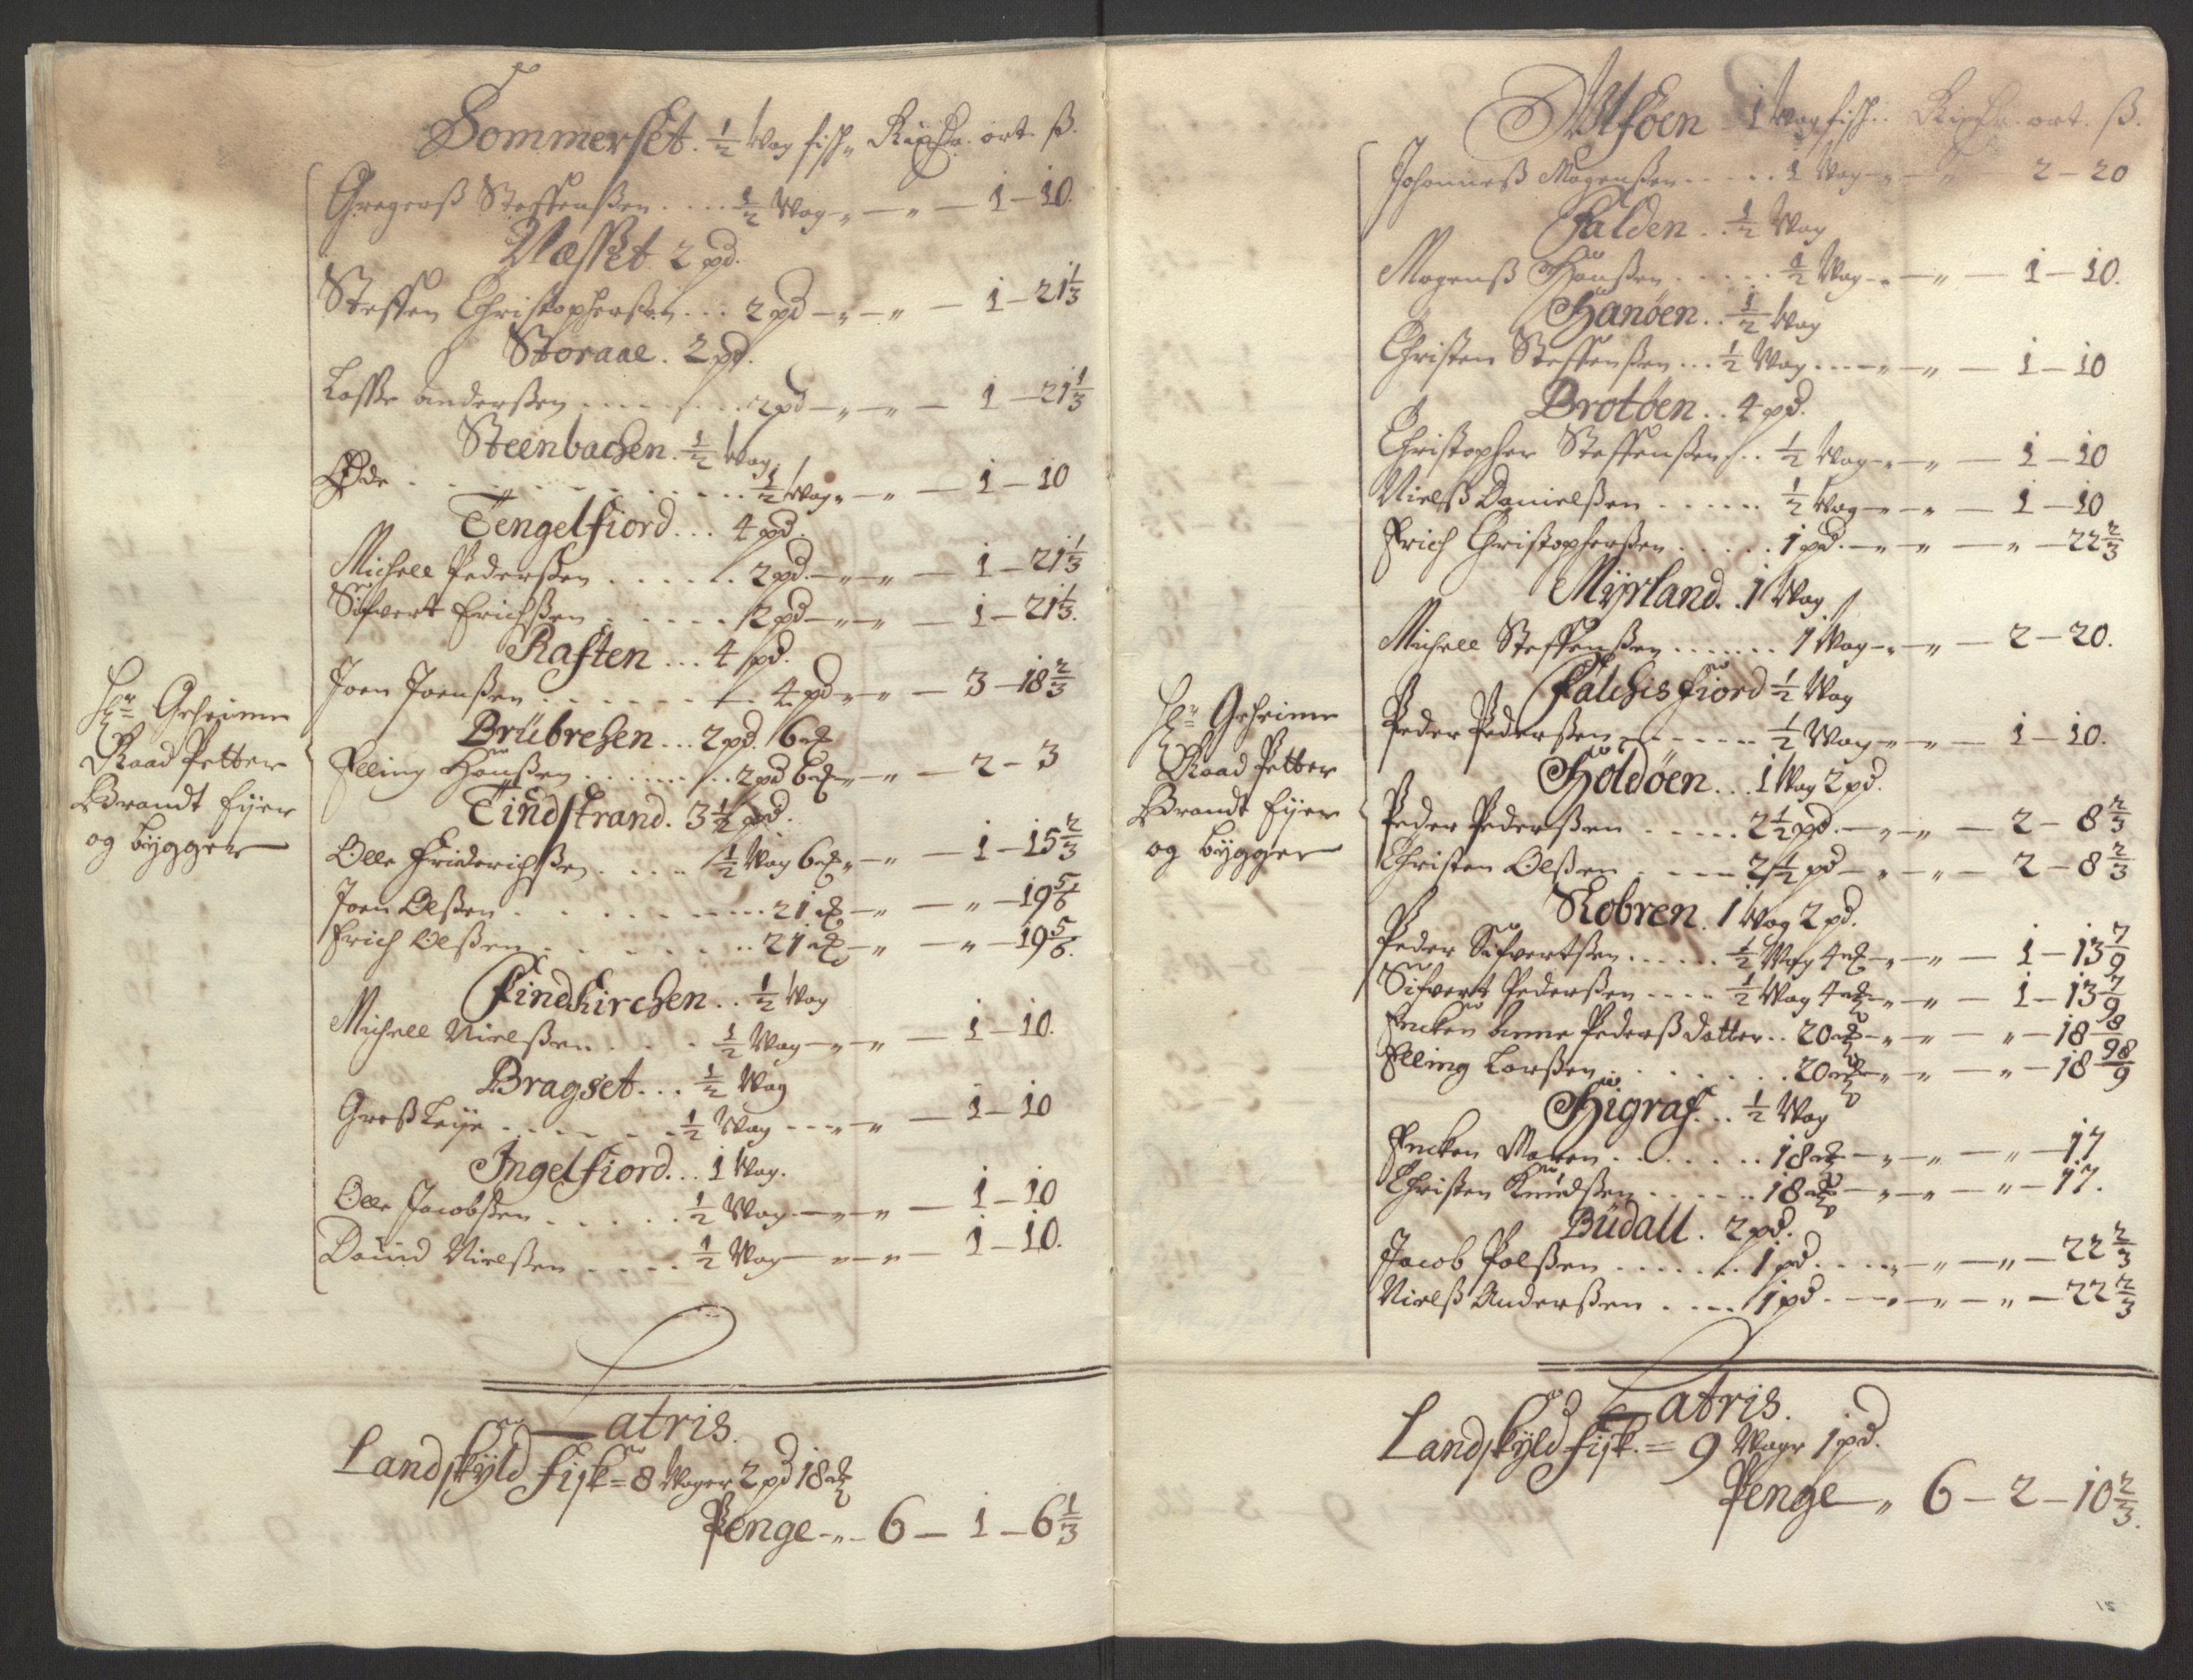 Sommerset. ½ Wog fisk „ Rixdr. ort. ß.
Gregerß Steffenßen .... ½ Wog „ — „ — 1 — 10.
Næsset 2 pd.
Steffen Christopherßen ... 2 pd — „ — „ — 1 — 21⅓
Storaae. 2 pd.
Lasse anderßen ........ 2 pd — „ — „ — 1 — 21⅓
Steenbachen. ½ Wog
Øde .............. ½ Wog „ — „ — 1 — 10
Tengelfiord ... 4 pd.
Michell Pederßen ...... 2 pd. — „ — „ — 1 — 21⅓
Sifvert Erichßen ...... 2 pd — „ — „ — 1 — 21⅓.
Raften ... 4 pd.
Joen Joenßen ........ 4 pd „ — „ — 3 — 18⅔
Brübrechen ... 2 pd. 6 ℔
Elling Hanßen ........ 2 pd 6 ℔ „ — „ — 2 — 3
Tindstrand. 3½ pd.
Olle Friderichßen .... ½ Wog 6 ℔ „ — „ — 1 — 15⅔
Joen Olßen .......... 21 ℔ — „ — „ — 19⅚
Erich Olßen ......... 21 ℔ — „ — „ — 19⅚.
Findkirchen .. ½ Wog
Michell Nielßen .... ½ Wog — „ — „ — 1 — 10.
Bragset ... ½ Wog
Groß Leije ....... ½ Wog — „ — „ — 1 — 10
Ingelfiord ... 1 Wog.
Olle Jacobßen ..... ½ Wog — „ — „ — 1 — 10
Dauid Nielßen .... ½ Wog — „ — „ — 1 — 10.
Hr Geheime
Raad Petter
Brandt Eijer
og bÿgger
Latris.
Landskÿld fisk = 8 Woger 2 pd 18 ℔
Penge — „ — 6 — 1 — 6⅓
Ulføen 1 Wog fisk .. Rixdr. ort. ß.
Johanneß Mogenßen ..... 1 Wog — „ — „ 2 — 20
Falden .. ½ Wog
Mogenß Hanßen ..... ½ Wog — „ — „ — 1 — 10.
Hanöen .. ½ Wog
Christen Steffenßen ... ½ Wog ... — „ — „ — 1 — 10
Brotöen .. 4 pd.
Christopher Steffenßen .. ½ Wog — „ — „ — 1 — 10
Nielß Danielßen ...... ½ Wog — „ — „ — 1 — 10
Erich Christopherßen ..... 1 pd. — „ — „ — „ — 22⅔
Mÿrland. . 1 Wog
Michell Steffenßen ....... 1 Wog — „ — „ — 2 — 20.
Falchisfiord ½ Wog
Peder Pederßen ........ ½ Wog „ — „ — 1 — 10.
Holdöen ... 1 Wog 2 pd.
Peder Pederßen ..... 2½ pd. — „ — „ — 2 — 8⅔
Christen Olßen .... 2½ pd — „ — „ — 2 — 8⅔
Robren. 1 Wog 2 pd.
Peder Sifvertßen ...... ½ Wog 4 ℔ — „ — „ — 1 — 13 7/9
Sifvert Pederßen .... ½ Wog 4 ℔ — „ — „ — 1 — 13 7/9
Encken Anne Pederß datter .. 20 ℔ — „ — „ — „ — 18 8/9
Elling Larßen ........ 20 ℔ „ — „ — „ — 18 8/9
Higraf ... ½ Wog
Encken Maren ........ 18 ℔ — „ — „ — „ — 17
Christen Knudßen ...... 18 ℔ — „ — „ — „ — 17.
Büdall. 2 pd.
Jacob Polßen ........ 1 pd. ... — „ — „ — „ — 22⅔
Nielß Anderßen .... 1 pd. — „ — „ — „ — 22⅔
Hr Geheime
Raad Petter
Brandt Eijer
og bÿgger
Latris.
Landskÿld fisk. = 9 Woge 1 pd.
Penge — „ 6 — 2 — 10⅔.
15